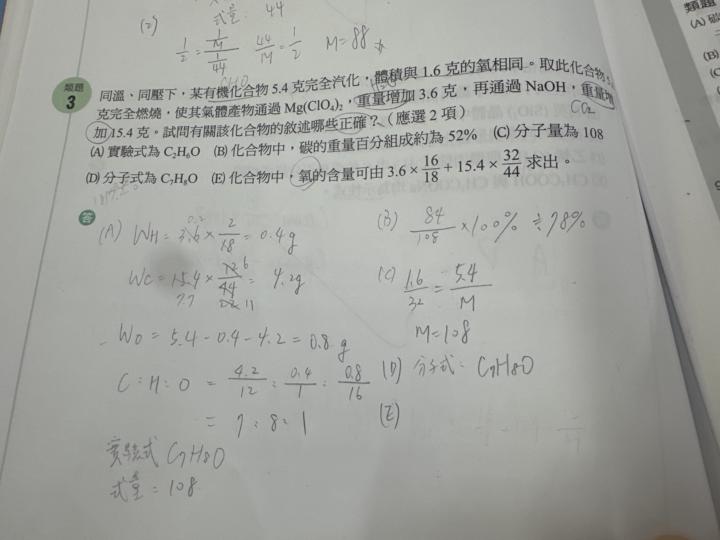 (2)
式量: 44
1/2 = (1/M)/(1/44) 44/M = 1/2 M=88
類題
(A)
(B)
(C)
(D)
類題 3
同溫、同壓下,某有機化合物 5.4 克完全汽化,體積與 1.6 克的氧相同。取此化合物 5.4
克完全燃燒,使其氣體產物通過 Mg(ClO₄)₂,重量增加 3.6 克,再通過 NaOH,重量增
加 15.4 克。試問有關該化合物的敘述哪些正確?(應選 2 項)
CO₂
(A) 實驗式為 C₂H₆O (B) 化合物中,碳的重量百分組成約為 52% (C) 分子量為 108
(D) 分子式為 C₇H₈O (E) 化合物中,氧的含量可由 3.6 × 16/18 + 15.4 × 32/44 求出。
答
(A) WH = 3.6 × 2/18 = 0.4g
0.2
WC = 15.4 × 12/44 = 4.2g
7.7 6 22 11
WO = 5.4 - 0.4 - 4.2 = 0.8 g
C : H : O = 4.2/12 : 0.4/1 : 0.8/16
= 7 : 8 : 1
實驗式 C₇H₈O
式量 = 108
(B) 84/108 × 100% ≑ 78%
(C) 1.6/32 = 5.4/M
M = 108
(D) 分子式: C₇H₈O
(E)